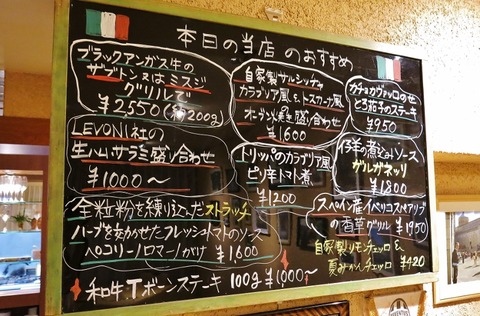 本日の当店のおすすめ
ブラックアンガス牛の
ザブトン又はミスジ
グリルで
¥2550(約200g)
LEVONI社の
生ハム・サラミ盛り合わせ
¥1000〜
全粒粉を練り込んだストラッチ
ハーブを効かせたフレッシュトマトのソース
ペコリーノロマーノがけ ¥1,600
和牛Tボーンステーキ 100g ¥1,000〜
自家製サルシッチャ
カラブリア風&トスカーナ風
オーブン焼き盛り合わせ
¥1600
トリッパのカラブリア風
ピリ辛トマト煮
¥1200
カチョカヴァッロのせ
とろ茄子のステーキ
¥950
仔羊の煮込みソース
ガルガネッリ
¥1800
スペイン産イベリコスペアリブ
の香草グリル ¥1950
自家製リモンチェッロ &
夏みかんチェッロ ¥420